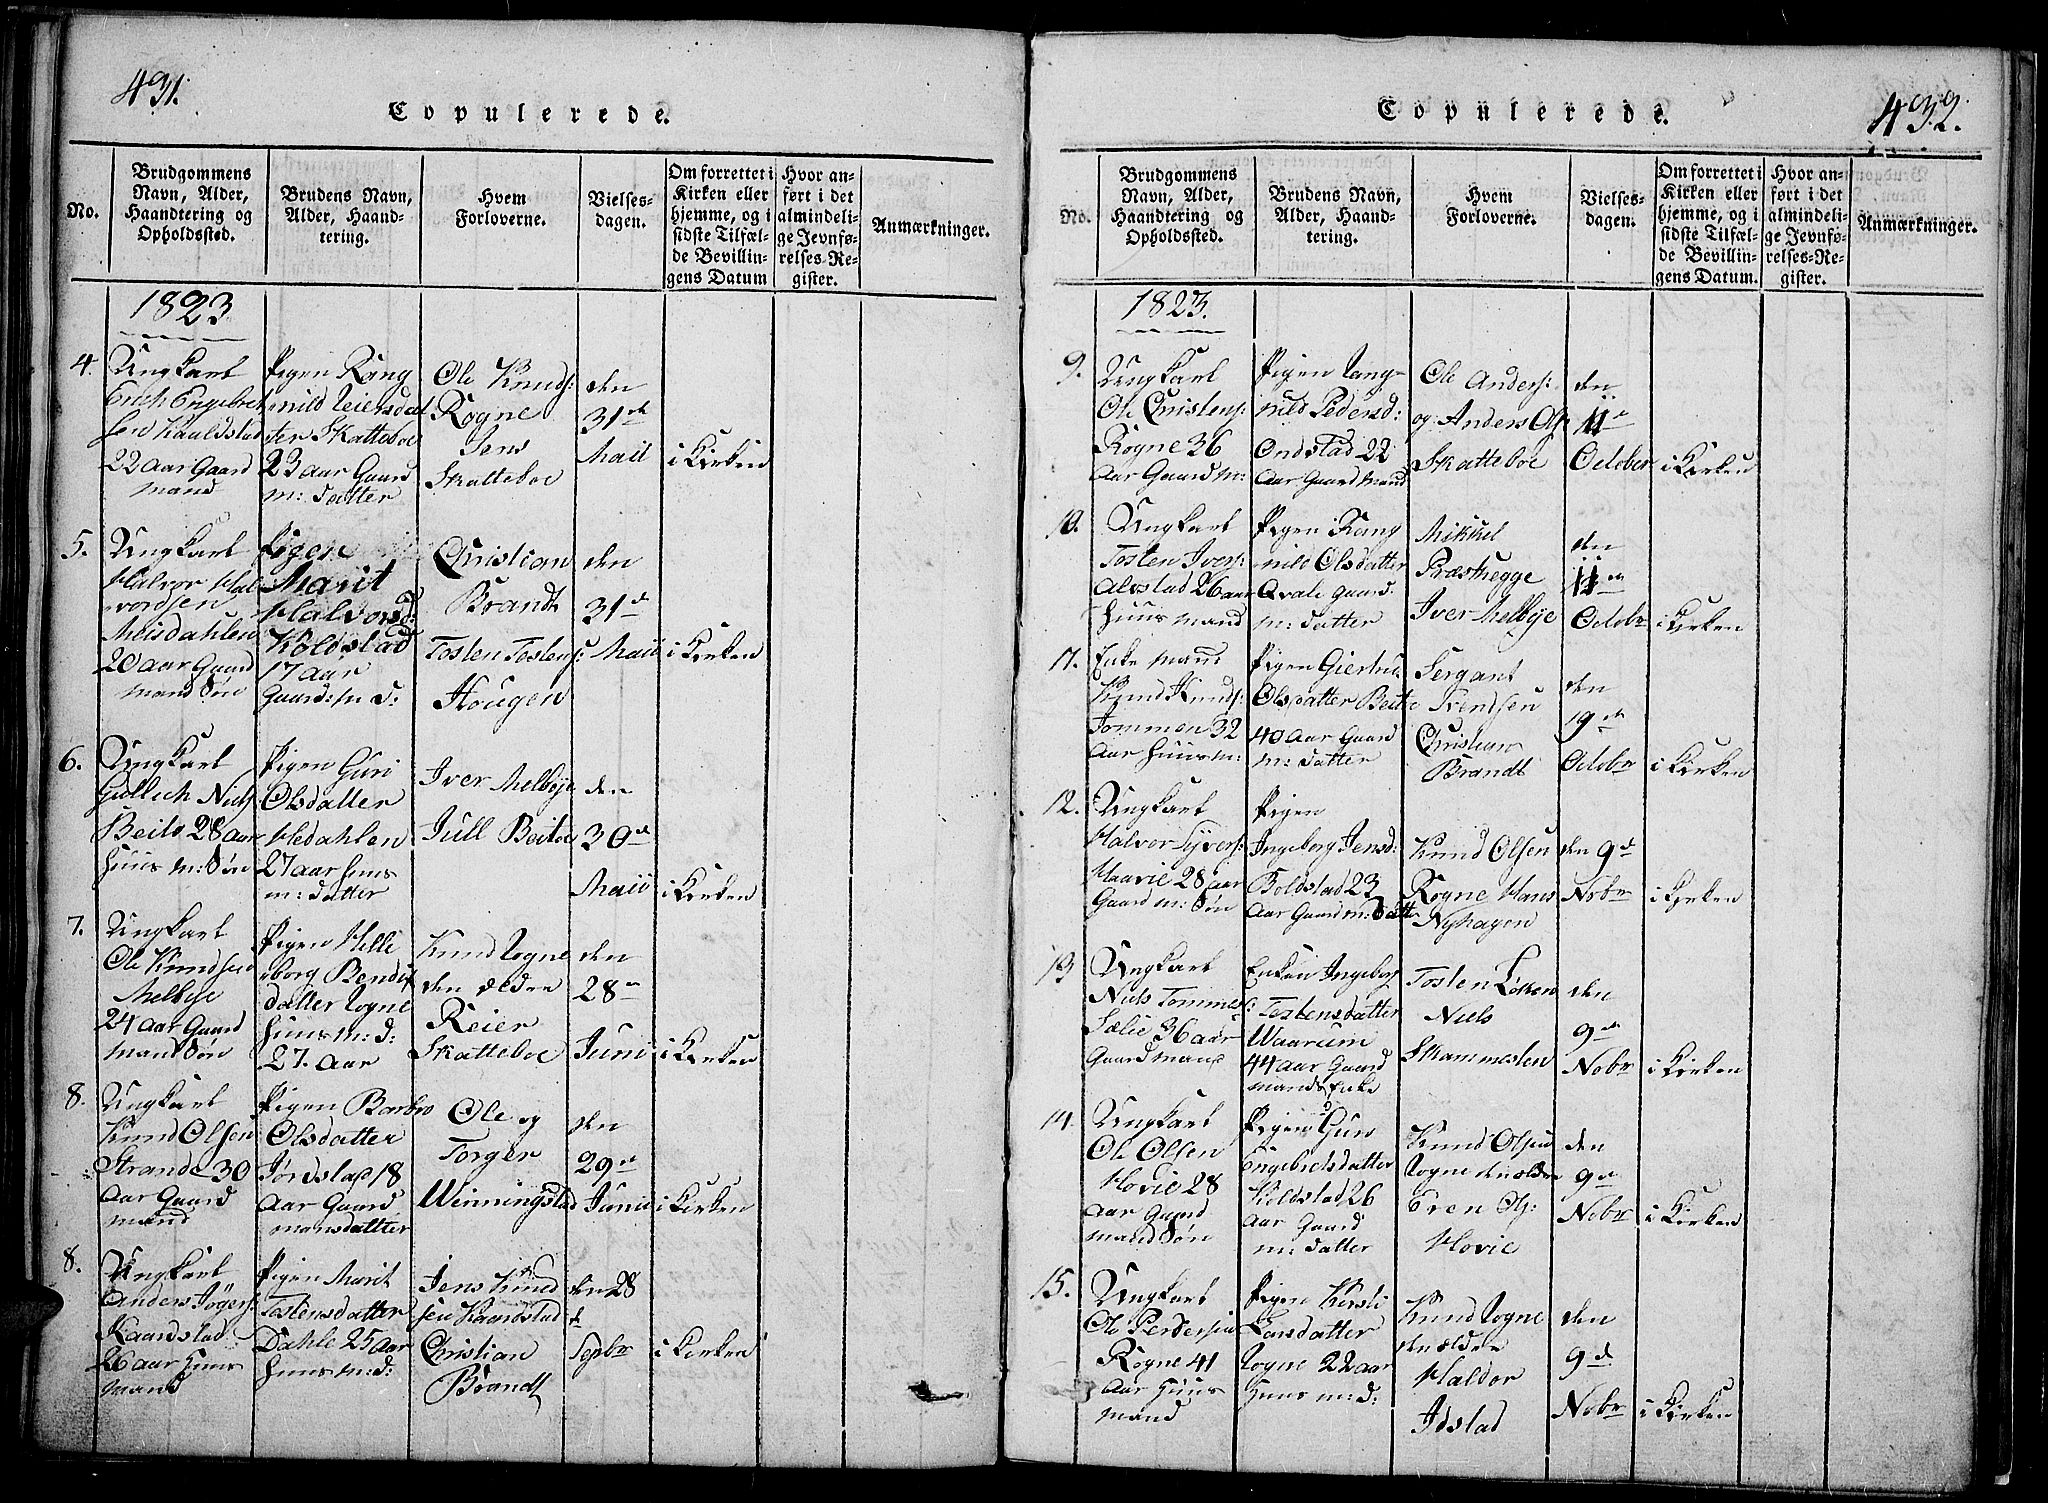 431.
Copulerede.
No.
Brudgommens
Navn, Alder,
Haandtering og
Opholdssted.
Brudens Navn,
Alder, Haand-
tering.
Hvem
Forloverne.
Vielses-
dagen.
Om forrettet i
Kirken eller
hjemme, og i
sidste Tilfæl-
de Bevillin-
gens Datum
Hvor an-
ført i det
almindeli-
ge Jevnfø-
relses-Re-
gister.
Anmærkninger.
1823
4.
Ungkarl
Erich Engebret
sen Kauldstad
22 Aar Gaard
mand
Pigen Rang
nild Reiersdat
ter Skatteboe
23 aar Gaard
m: datter
Ole Knuds:
Rogne
Jens
Skatteboe
den
31te
Maii
i Kirken
5.
Ungkarl
Halvor Hal
vordsen
Meisdahlen
20 aar Gaard
mand Søn
Pigen
Marit
Halvorsd:
Koldstad
17 aar
Gaard: m D:
Christian
Brandt
Tosten Tostens:
Hougen
den
31te
Maii
i Kirken
6.
Ungkarl
Gullech Niels
Beito 28 aar
Huus m: Søn
Pigen Guri
Olsdatter
Hedahlen
27 aar Huus
m: datter
Iver Melbye
Jull Beitoe
den
30te
Maii
i Kirken
7.
Ungkarl
Ole Knudsen
Melbye
24 Aar Gaard
mand Søn
Pigen Helle
borg Bendix
datter Rogne
Huus m: d:
27. Aar
Knud Rogne
den ældre
Reier
Skatteboe
den
28de
Junii
i Kirken
8.
Ungkarl
Knud Olsen
Strande 30
Aar Gaard
mand
Pigen Barbro
Olsdatter
Jordstad 18
Aar Gaard
mansdatter
Ole og
Torger
Winningstad
den
29de
Junii
i Kirken
8.
Ungkarl
Anders
Kaardstad
26 aar Huus
mand
Pigen Marit
Tostensdatter
Dahle 25 Aar
Huus m: d:
Jens Knud
sen Kaardstad
Christian
Brandt
den 28
Sepbr
i Kirken
432.
Copulerede.
No.
Brudgommens
Navn, Alder,
Haandtering og
Opholdssted.
Brudens Navn,
Alder, Haand-
tering.
Hvem
Forloverne.
Vielses-
dagen.
Om forrettet i
Kirken eller
hjemme, og i
sidste Tilfæl-
de Bevillin-
gens Datum.
Hvor an-
ført i det
almindeli-
ge Jevnfø-
relses-Re-
gister.
Anmærkninger.
1823.
9.
Ungkarl
Ole Christens:
Rogne 36
Aar Gaard m:
Pigen Rang-
nild Pedersd:
Ondstad 22
Aar Gaard mand
Ole Anders:
og Anders Ols
Skatteboe
den
11te
October
i Kirken
10.
Ungkarl
Tosten Ivers:
Alvstad 26 aar
Huus mand
Pigen Rang
nild Olsdatter
Qvale Gaard
m: datter
Mikkel
Præsthegge
Iver Melbye
den
11te
Octobr
i Kirken
11.
Enke mand
Knud Knuds:
Tommen 32
Aar Huus m:
Pigen Giertrud
Olsdatter Beito
40 Aar Gaard
m: datter
Sergant
Svendsen
Christian
Brandt
den
19de
Octobr
i Kirken
12.
Ungkarl
Halvor Syvers:
Haavie 28 aar
Gaard m: Søn
Pigen
Ingeborg Jensd:
Boldstad 23
Aar Gaard m: datter
Knud Olsen
Rogne Hans
Nyhagen
den 9de
Nobr
i Kirken
13
Ungkarl
Niels Tommes:
Sælie 36 aar
Gaard mand
Enken Ingebor
Tostensdatter
Waarum
44 aar Gaard
mands Enke
Tosten Løken
Niels
Skammesten
den
9de
Nobr
i Kirken
14.
Ungkarl
Ole Olsen
Hovie 28
Aar Gaard
mand Søn
Pigen Guri
Engebretsdatter
Koldstad 26
Aar Gaard
m: datter
Knud Olsen
Rogne den ældre
Even Ols:
Hovie
den
9de
Nobr
i Kirken
15.
Ungkarl
Ole Pedersen
Rogne 41
Aar Huus
mand
Pigen Kirsti
Larsdatter
Rogne 22 aar
Huus m: d:
Knud Rogne
den ældre
Haldor
Idstad
den
9de
Nobr
i Kirken